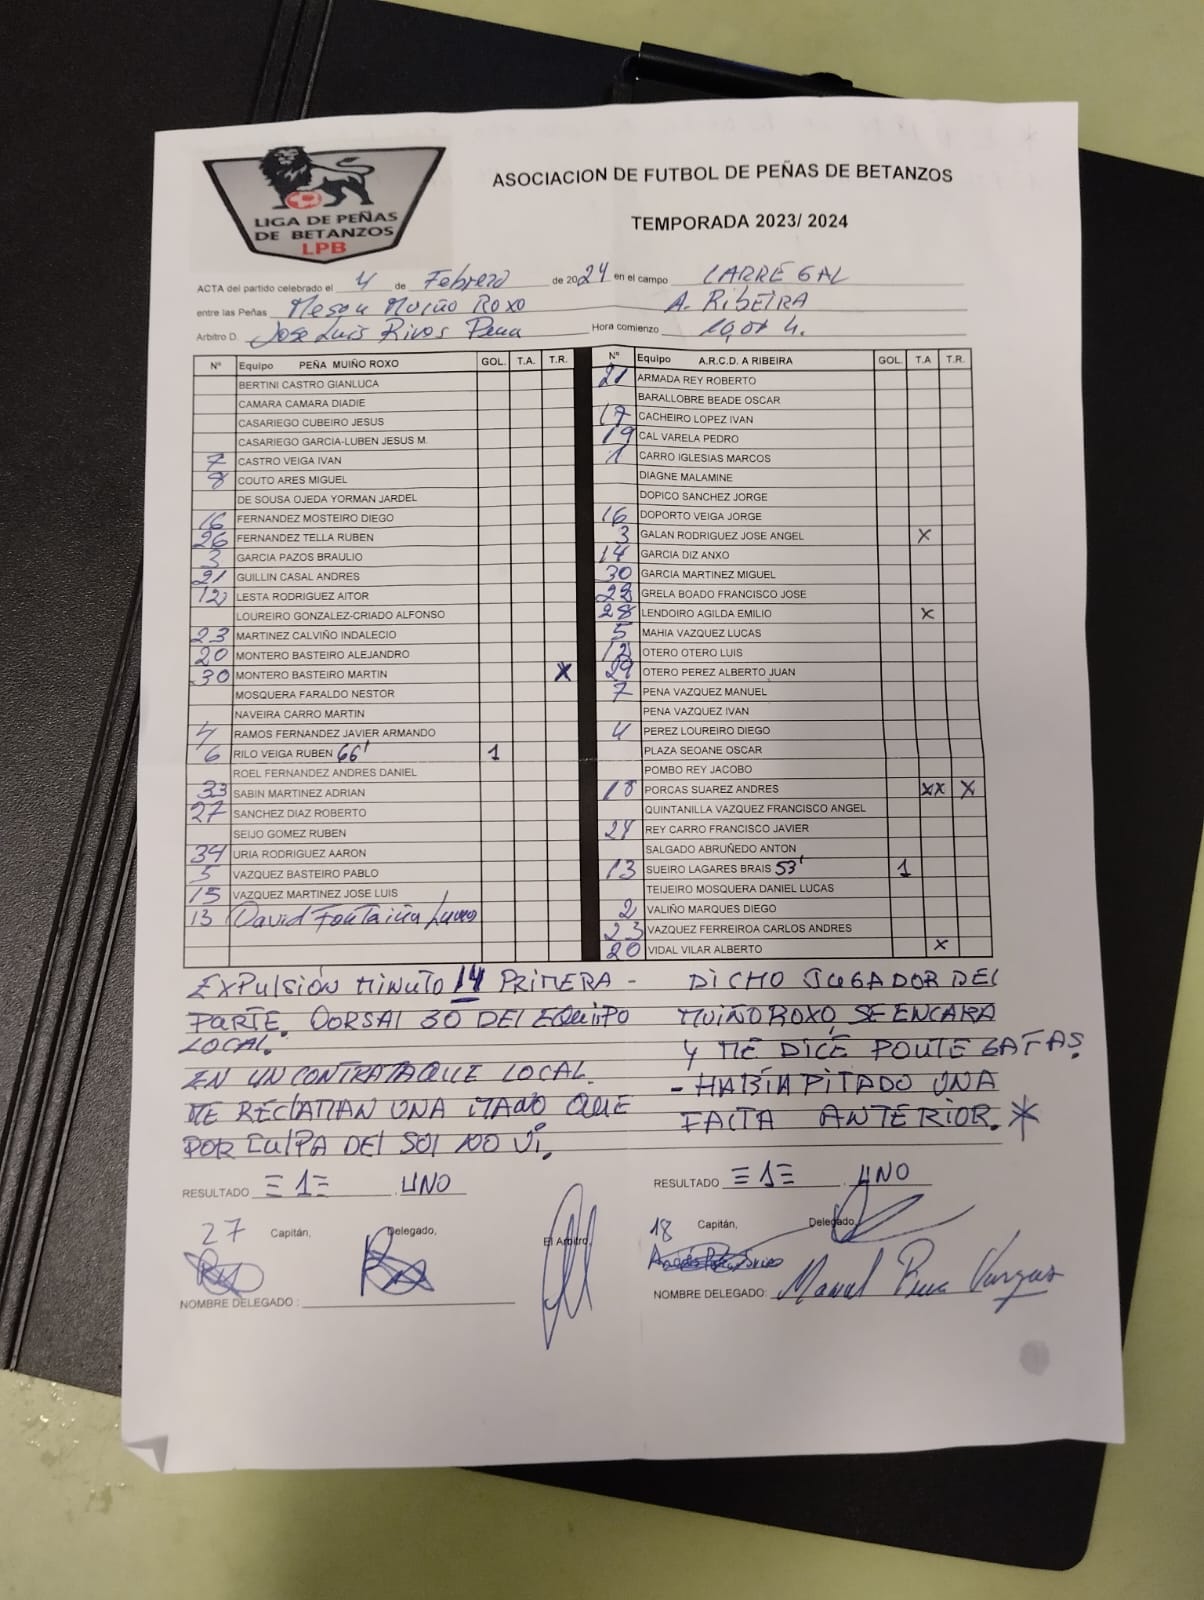 LIGA DE PEÑAS
DE BETANZOS
LPB
ASOCIACION DE FUTBOL DE PEÑAS DE BETANZOS
TEMPORADA 2023/ 2024
ACTA del partido celebrado el 4 de Febrero de 2024 en el campo CARREGAL
entre las Peñas Meson Muiño Roxo A. RIBEIRA
Arbitro D. Jose Luis Rivas Pena Hora comienzo
Nº Equipo PEÑA MUIÑO ROXO GOL. T.A. T.R.
BERTINI CASTRO GIANLUCA
CAMARA CAMARA DIADIE
CASARIEGO CUBEIRO JESUS
CASARIEGO GARCIA-LUBEN JESUS M.
7 CASTRO VEIGA IVAN
8 COUTO ARES MIGUEL
DE SOUSA OJEDA YORMAN JARDEL
16 FERNANDEZ MOSTEIRO DIEGO
26 FERNANDEZ TELLA RUBEN
3 GARCIA PAZOS BRAULIO
21 GUILLIN CASAL ANDRES
12 LESTA RODRIGUEZ AITOR
LOUREIRO GONZALEZ-CRIADO ALFONSO
23 MARTINEZ CALVIÑO INDALECIO
20 MONTERO BASTEIRO ALEJANDRO
30 MONTERO BASTEIRO MARTIN X
MOSQUERA FARALDO NESTOR
NAVEIRA CARRO MARTIN
4 RAMOS FERNANDEZ JAVIER ARMANDO
6 RILO VEIGA RUBEN 66' 1
ROEL FERNANDEZ ANDRES DANIEL
33 SABIN MARTINEZ ADRIAN
27 SANCHEZ DIAZ ROBERTO
SEIJO GOMEZ RUBEN
34 URIA RODRIGUEZ AARON
5 VAZQUEZ BASTEIRO PABLO
15 VAZQUEZ MARTINEZ JOSE LUIS
13 David Fontaiña
Nº Equipo A.R.C.D. A RIBEIRA GOL. T.A T.R.
21 ARMADA REY ROBERTO
BARALLOBRE BEADE OSCAR
17 CACHEIRO LOPEZ IVAN
19 CAL VARELA PEDRO
1 CARRO IGLESIAS MARCOS
DIAGNE MALAMINE
DOPICO SANCHEZ JORGE
16 DOPORTO VEIGA JORGE
3 GALAN RODRIGUEZ JOSE ANGEL X
14 GARCIA DIZ ANXO
30 GARCIA MARTINEZ MIGUEL
GRELA BOADO FRANCISCO JOSE
28 LENDOIRO AGILDA EMILIO X
5 MAHIA VAZQUEZ LUCAS
OTERO OTERO LUIS
29 OTERO PEREZ ALBERTO JUAN
7 PENA VAZQUEZ MANUEL
PENA VAZQUEZ IVAN
4 PEREZ LOUREIRO DIEGO
PLAZA SEOANE OSCAR
POMBO REY JACOBO
18 PORCAS SUAREZ ANDRES XX X
QUINTANILLA VAZQUEZ FRANCISCO ANGEL
24 REY CARRO FRANCISCO JAVIER
SALGADO ABRUÑEDO ANTON
13 SUEIRO LAGARES BRAIS 53' 1
TEIJEIRO MOSQUERA DANIEL LUCAS
2 VALIÑO MARQUES DIEGO
23 VAZQUEZ FERREIROA CARLOS ANDRES
20 VIDAL VILAR ALBERTO X
EXPULSIÓN MINUTO 14 PRIMERA -
PARTE. DORSAL 30 DEL EQUIPO
LOCAL.
EN UN CONTRATAQUE LOCAL.
ME RECLAMAN UNA MANO QUE
POR CULPA DEL SOL NO VI.
DICHO JUGADOR DEL
MUIÑO ROXO, SE ENCARA
Y ME DICE PONTE GAFAS.
- HABÍA PITADO UNA
FALTA ANTERIOR. *
RESULTADO =1= UNO
RESULTADO =1= UNO
27 Capitán, Delegado, El Arbitro, 18 Capitán, Delegado,
NOMBRE DELEGADO :
NOMBRE DELEGADO: Manuel